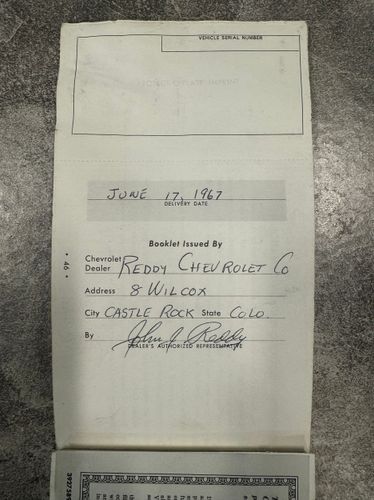 VEHICLE SERIAL NUMBER
JUNE 17, 1967
DELIVERY DATE
Booklet Issued By
Chevrolet Dealer REDDY CHEVROLET Co
Address 8 WILCOX
City CASTLE ROCK State COLO.
By John J. Reddy
DEALER'S AUTHORIZED REPRESENTATIVE
• 46 •